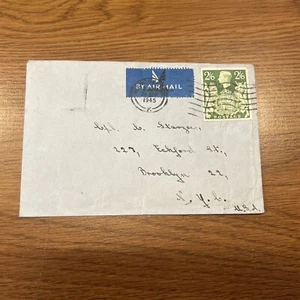 2/6 2/6
BY AIR MAIL
1945
227, Eckford St.,
Brooklyn 22,
N. Y. C.
U.S.A.